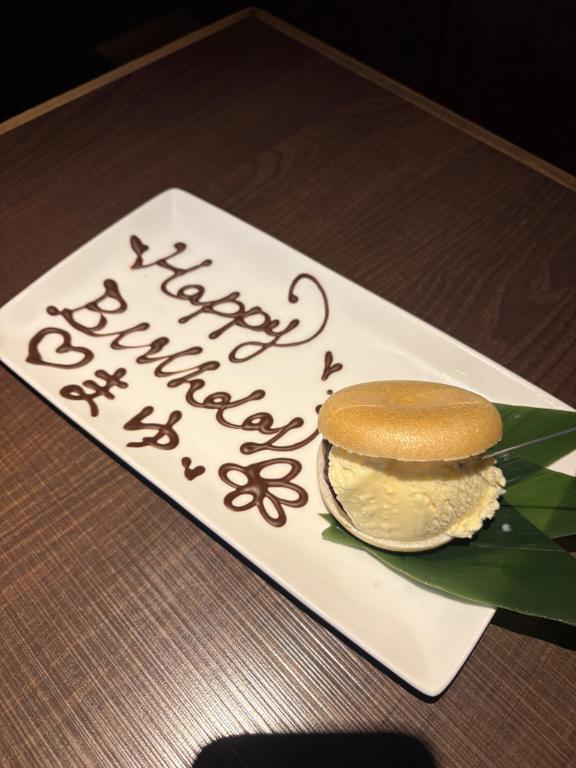 Happy
Birthday
まゆ